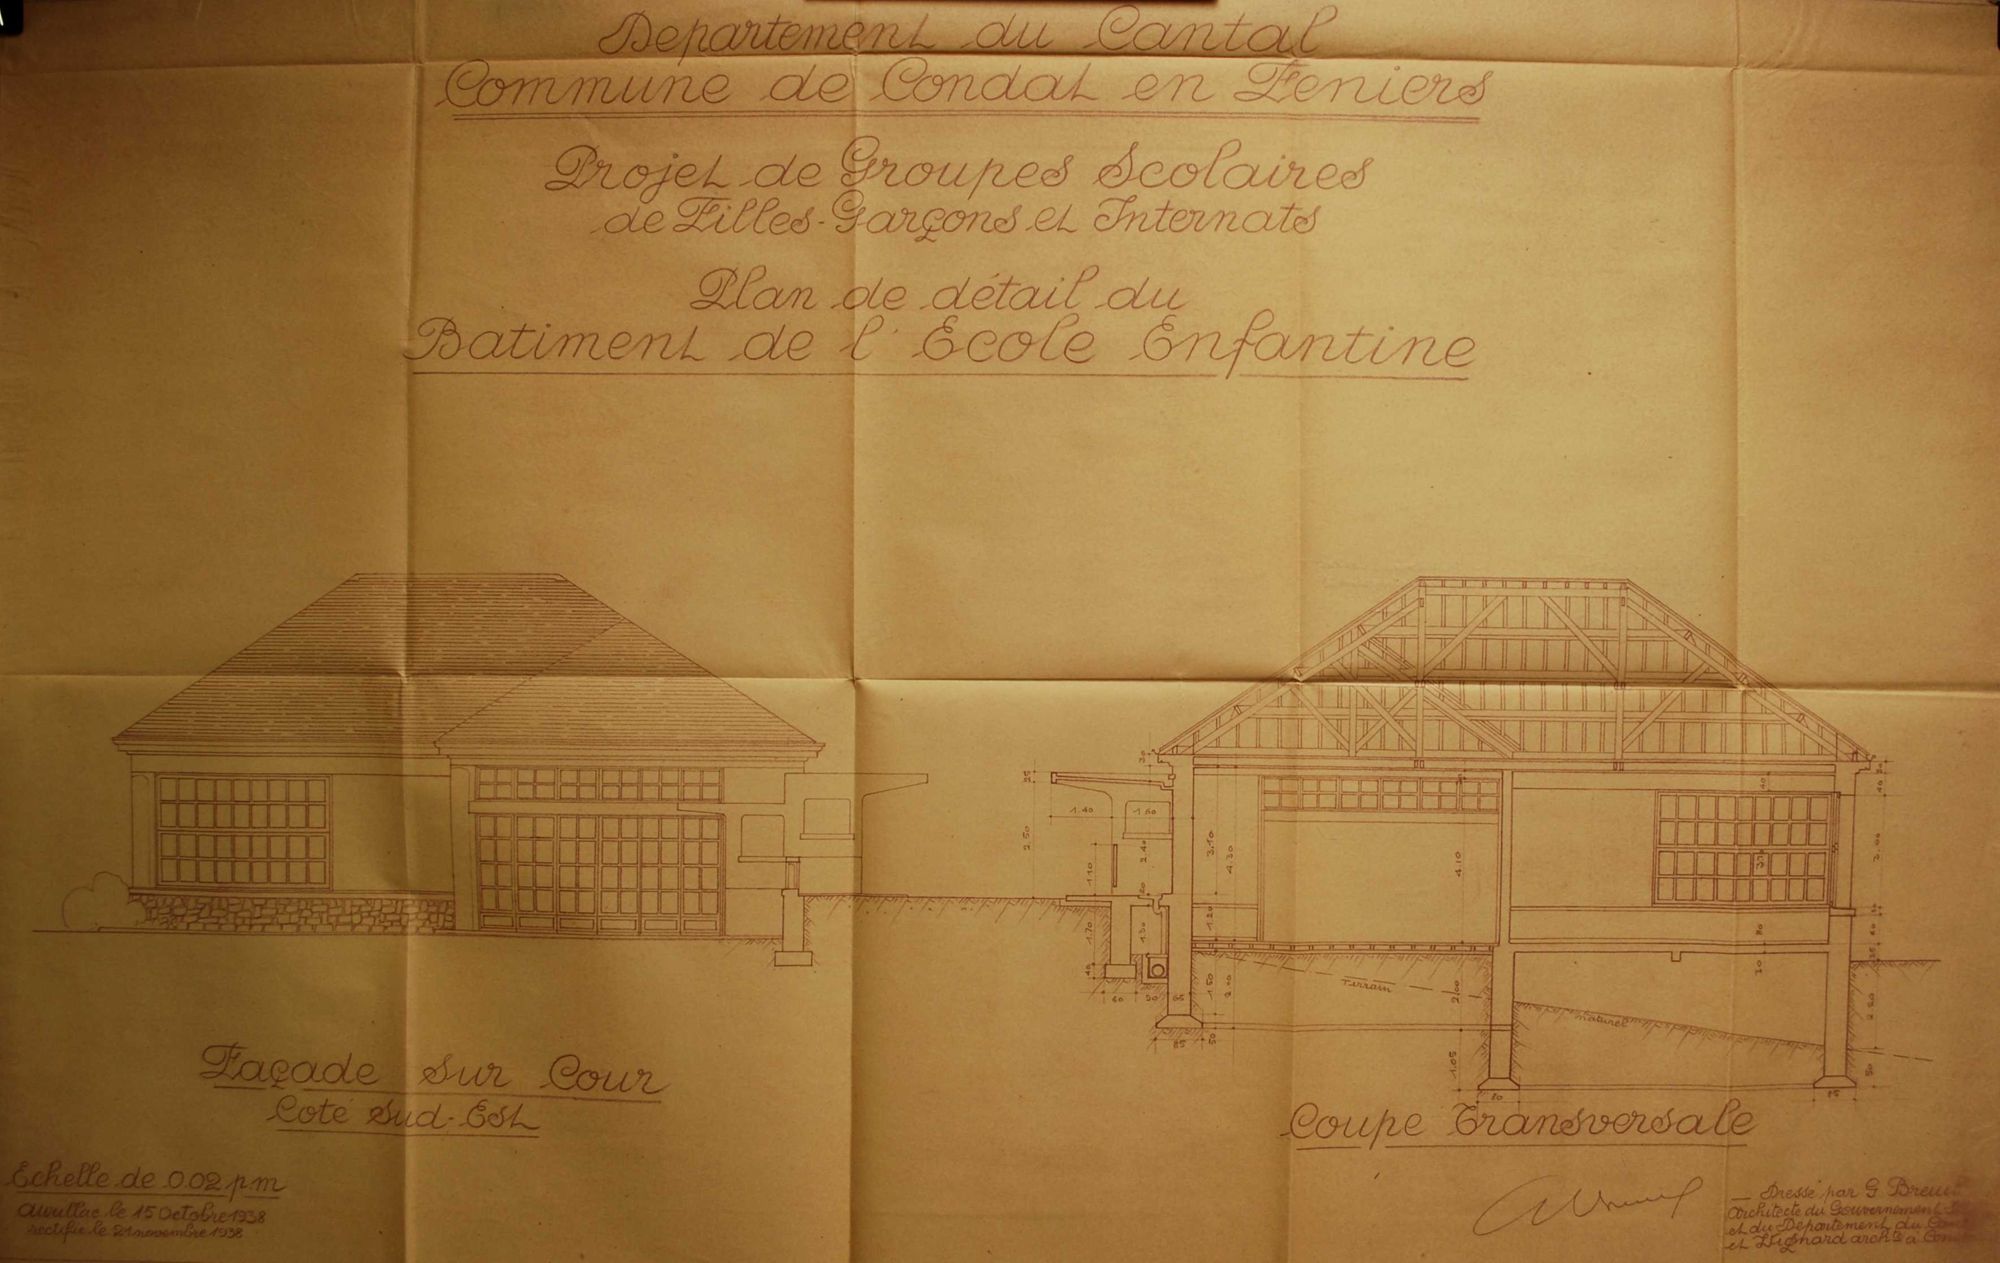 Departement du Cantal
Commune de Condat en Feniers
Projet de Groupes Scolaires
de Filles-Garçons et Internats
Plan de détail du
Batiment de l'Ecole Enfantine
25
2.50
1.40
1.60
1.10
2.40
20
1.70
1.30
40
60
50
65
85
50
30
3.10
4.30
1.20
1.50
2.00
4.10
2.00
1.05
70
Terrain
naturel
40
80
20
40
50
85
Façade sur Cour
Coté Sud-Est
Coupe Transversale
Echelle de 0.02 p.m
Aurillac le 15 Octobre 1938
rectifié le 21 novembre 1938
— Dressé par G Breuil
Architecte du Gouvernement
et du Departement du
et archte à